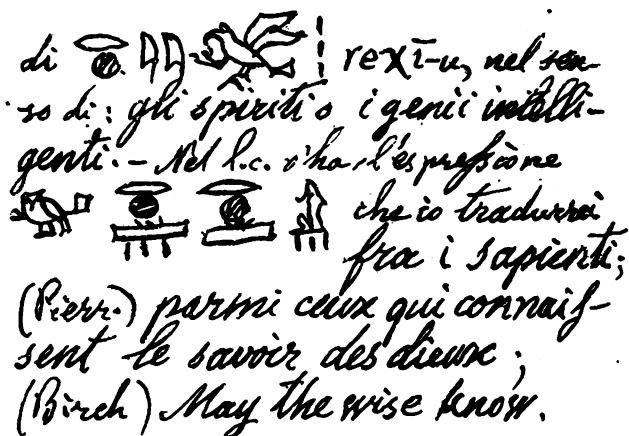 di reχī-u, nel sen-
so di: gli spiriti o i genii intelli-
genti. – Nel l.c. s'ha l'espreſsione
che io tradurrei
fra i sapienti;
(Pierr.) parmi ceux qui connaiſ-
sent le savoir des dieux;
(Birch) May the wise know.